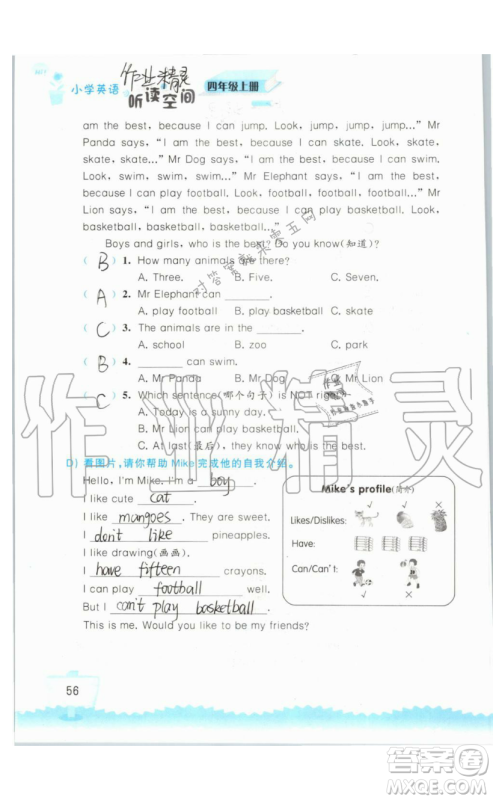 小学英语 作业精灵 四年级上册
听读空间
am the best, because I can jump. Look, jump, jump, jump..." Mr
Panda says, "I am the best, because I can skate. Look, skate,
skate, skate..." Mr Dog says, "I am the best, because I can swim.
Look, swim, swim, swim..." Mr Elephant says, "I am the best,
because I can play football. Look, football, football, football..."
Mr Lion says, "I am the best, because I can play basketball. Look,
basketball, basketball, basketball..."
Boys and girls, who is the best? Do you know(知道)?
( B ) 1. How many animals are there?
A. Three. B. Five. C. Seven.
( A ) 2. Mr Elephant can ______.
A. play football B. play basketball C. skate
( C ) 3. The animals are in the ______.
A. school B. zoo C. park
( B ) 4. ______ can swim.
A. Mr Panda B. Mr Dog C. Mr Lion
( C ) 5. Which sentence(哪个句子) is NOT right?
A. Today is a sunny day.
C. At last(最后), they know who is the best.
D) 看图片,请你帮助 Mike 完成他的自我介绍。
Hello, I'm Mike. I'm a boy.
I like cute cat.
I like mangoes. They are sweet.
I don't like pineapples.
I like drawing(画画).
I have fifteen crayons.
I can play football well.
But I can't play basketball.
This is me. Would you like to be my friends?
Mike's profile(简介)
Likes/Dislikes:
Have:
Can/Can't:
56
作业精灵
答案圈
MXQE.COM